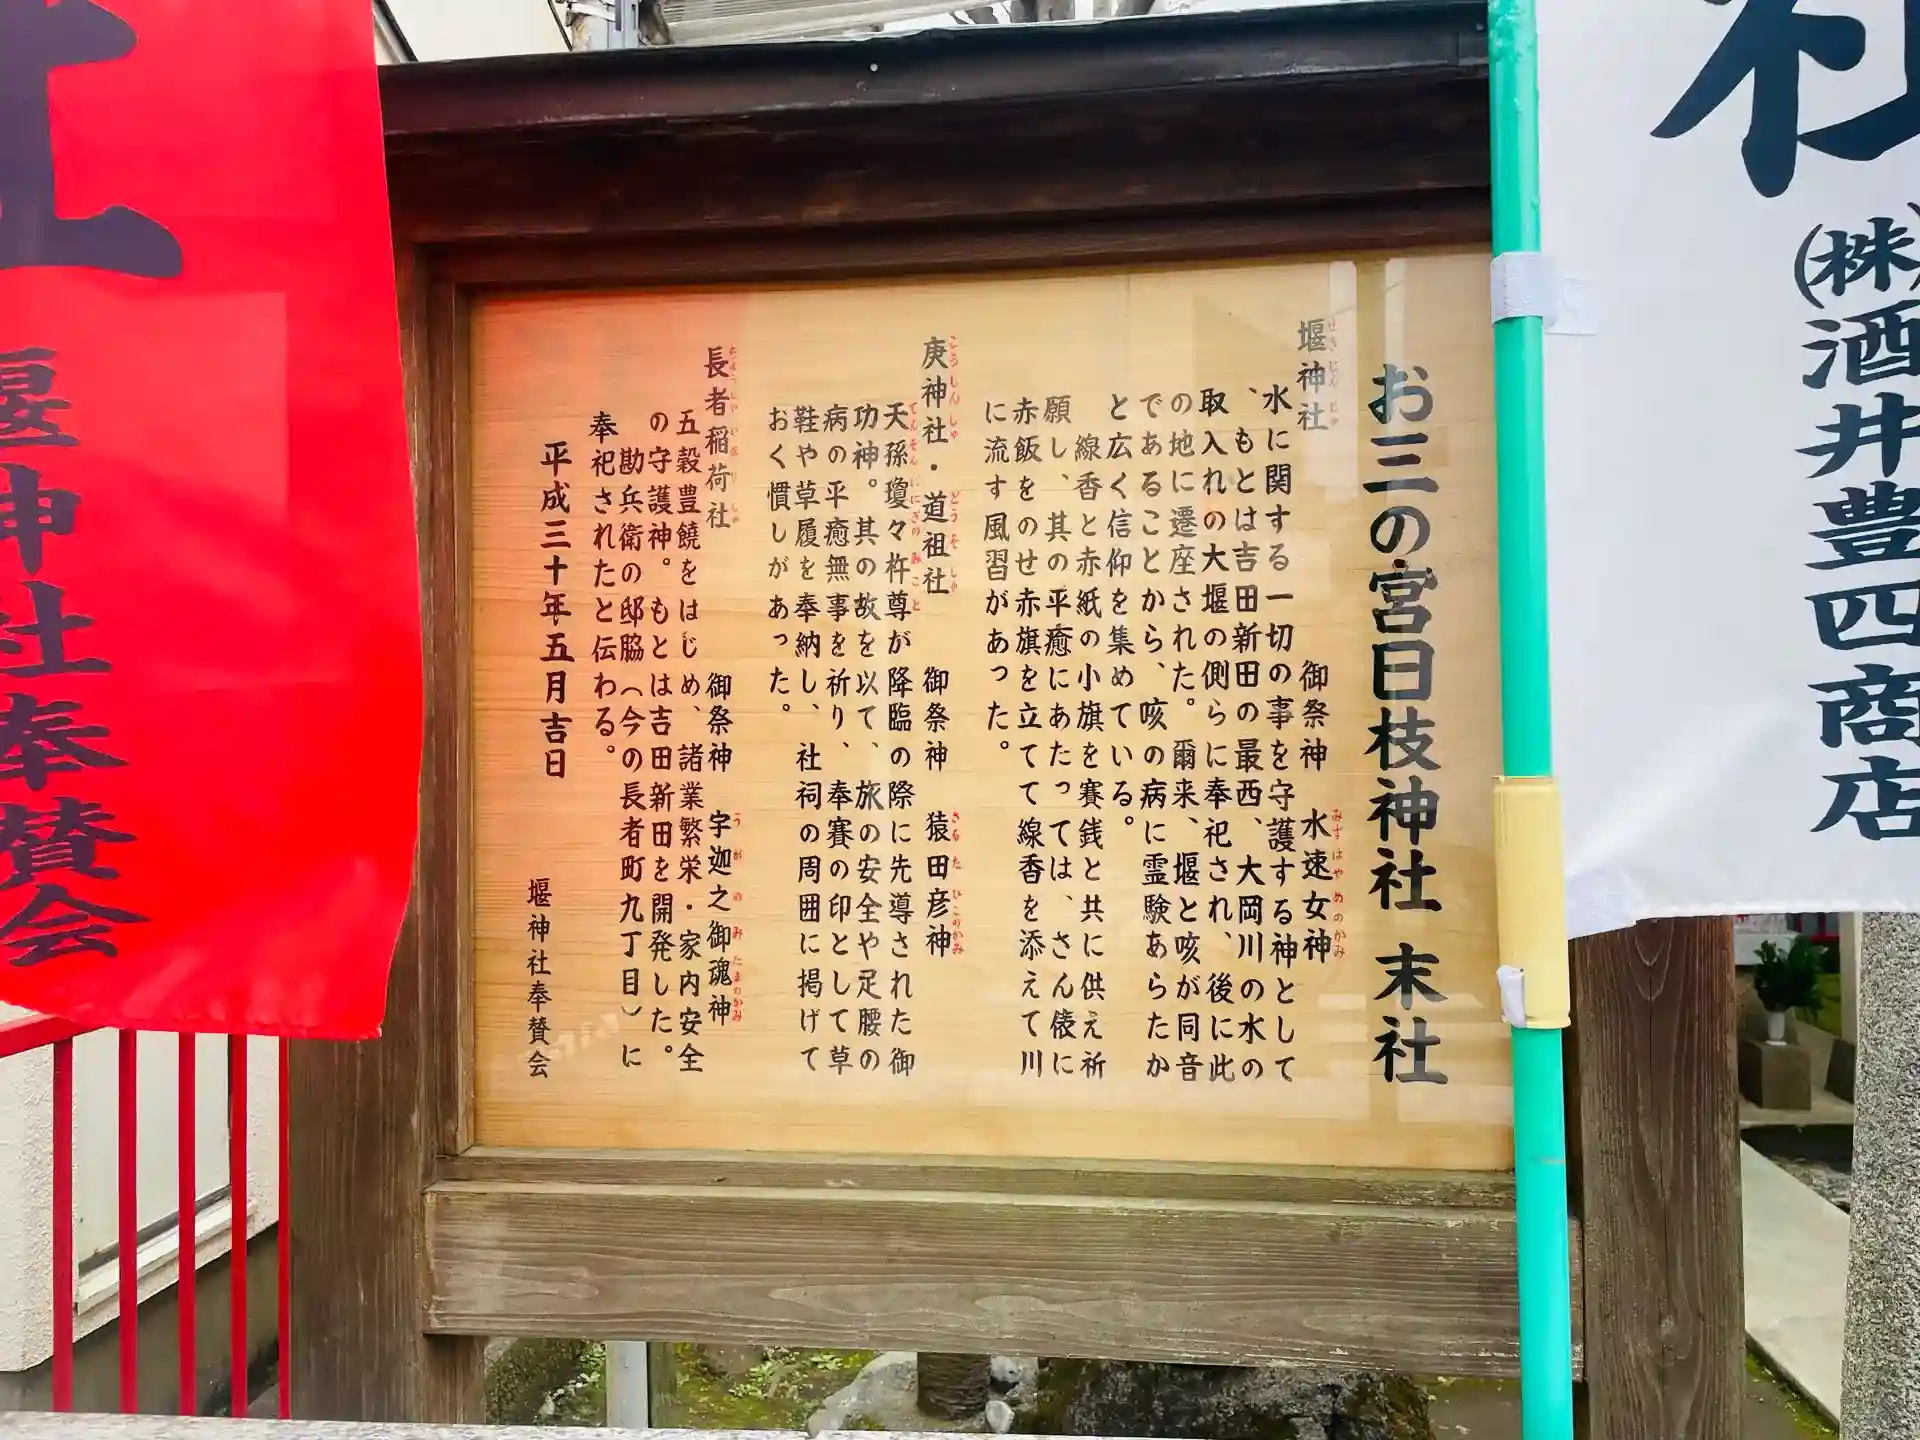 お三の宮日枝神社 末社
堰神社 御祭神 水速女神
せきじんじゃ みずはやめのかみ
水に関する一切の事を守護する神として
、もとは吉田新田の最西、大岡川の水の
取入れの大堰の側らに奉祀され、後に此
の地に遷座された。爾来、堰と咳が同音
であることから、咳の病に霊験あらたか
と広く信仰を集めている。
線香と赤紙の小旗を賽銭と共に供え祈
願し、其の平癒にあたっては、さん俵に
赤飯をのせ赤旗を立てて線香を添えて川
に流す風習があった。
庚神社・道祖社 御祭神 猿田彦神
こうしんしゃ どうそしゃ さるたひこのかみ
天孫瓊々杵尊が降臨の際に先導された御
てんそんににぎのみこと
功神。其の故を以て、旅の安全や足腰の
病の平癒無事を祈り、奉賽の印として草
鞋や草履を奉納し、社祠の周囲に掲げて
おく慣しがあった。
長者稲荷社 御祭神 宇迦之御魂神
ちょうじゃいなりしゃ うがのみたまのかみ
五穀豊饒をはじめ、諸業繁栄・家内安全
の守護神。もとは吉田新田を開発した。
勘兵衛の邸脇（今の長者町九丁目）に
奉祀されたと伝わる。
平成三十年五月吉日
堰神社奉賛会
社
(株)酒井豊四商店
社
堰神社奉賛会